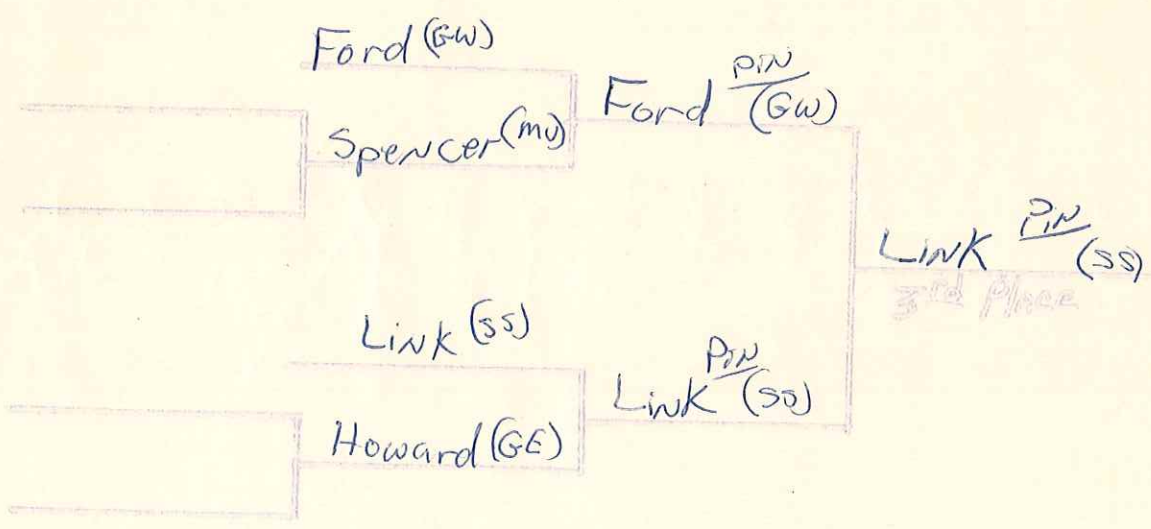 Ford (GW)
Spencer (MU)
Ford PIN (GW)
Link (SS)
Howard (GE)
Link PIN (SS)
Link PIN (SS)
3rd Place